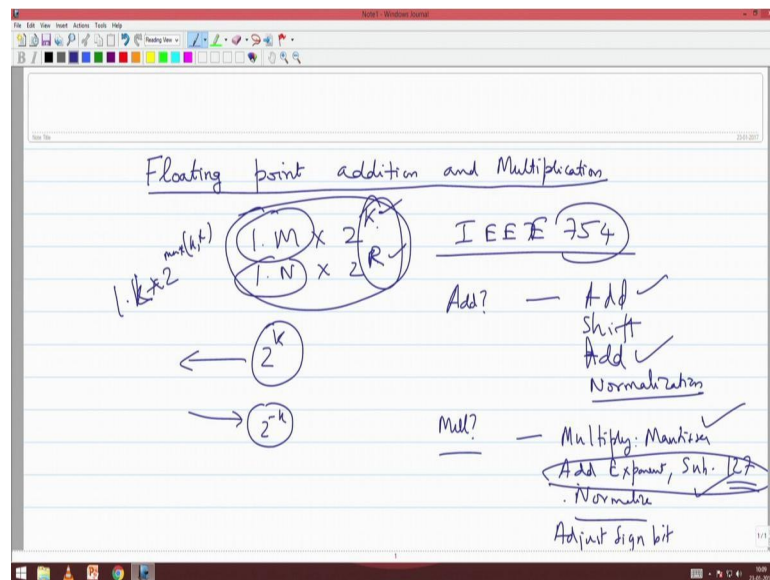 Note1 - Windows Journal
File Edit View Insert Actions Tools Help
Reading View
B I
Note Title
23-01-2017
Floating point addition and Multiplication
1.M x 2^K
1.N x 2^R
IEEE 754
Add? — Add
Shift
Add
Normalization
2^k
2^-k
Mul? — Multiply: Mantissa
Add Exponent, Sub. 127
Normalize
Adjust sign bit
1/1
1
10:09